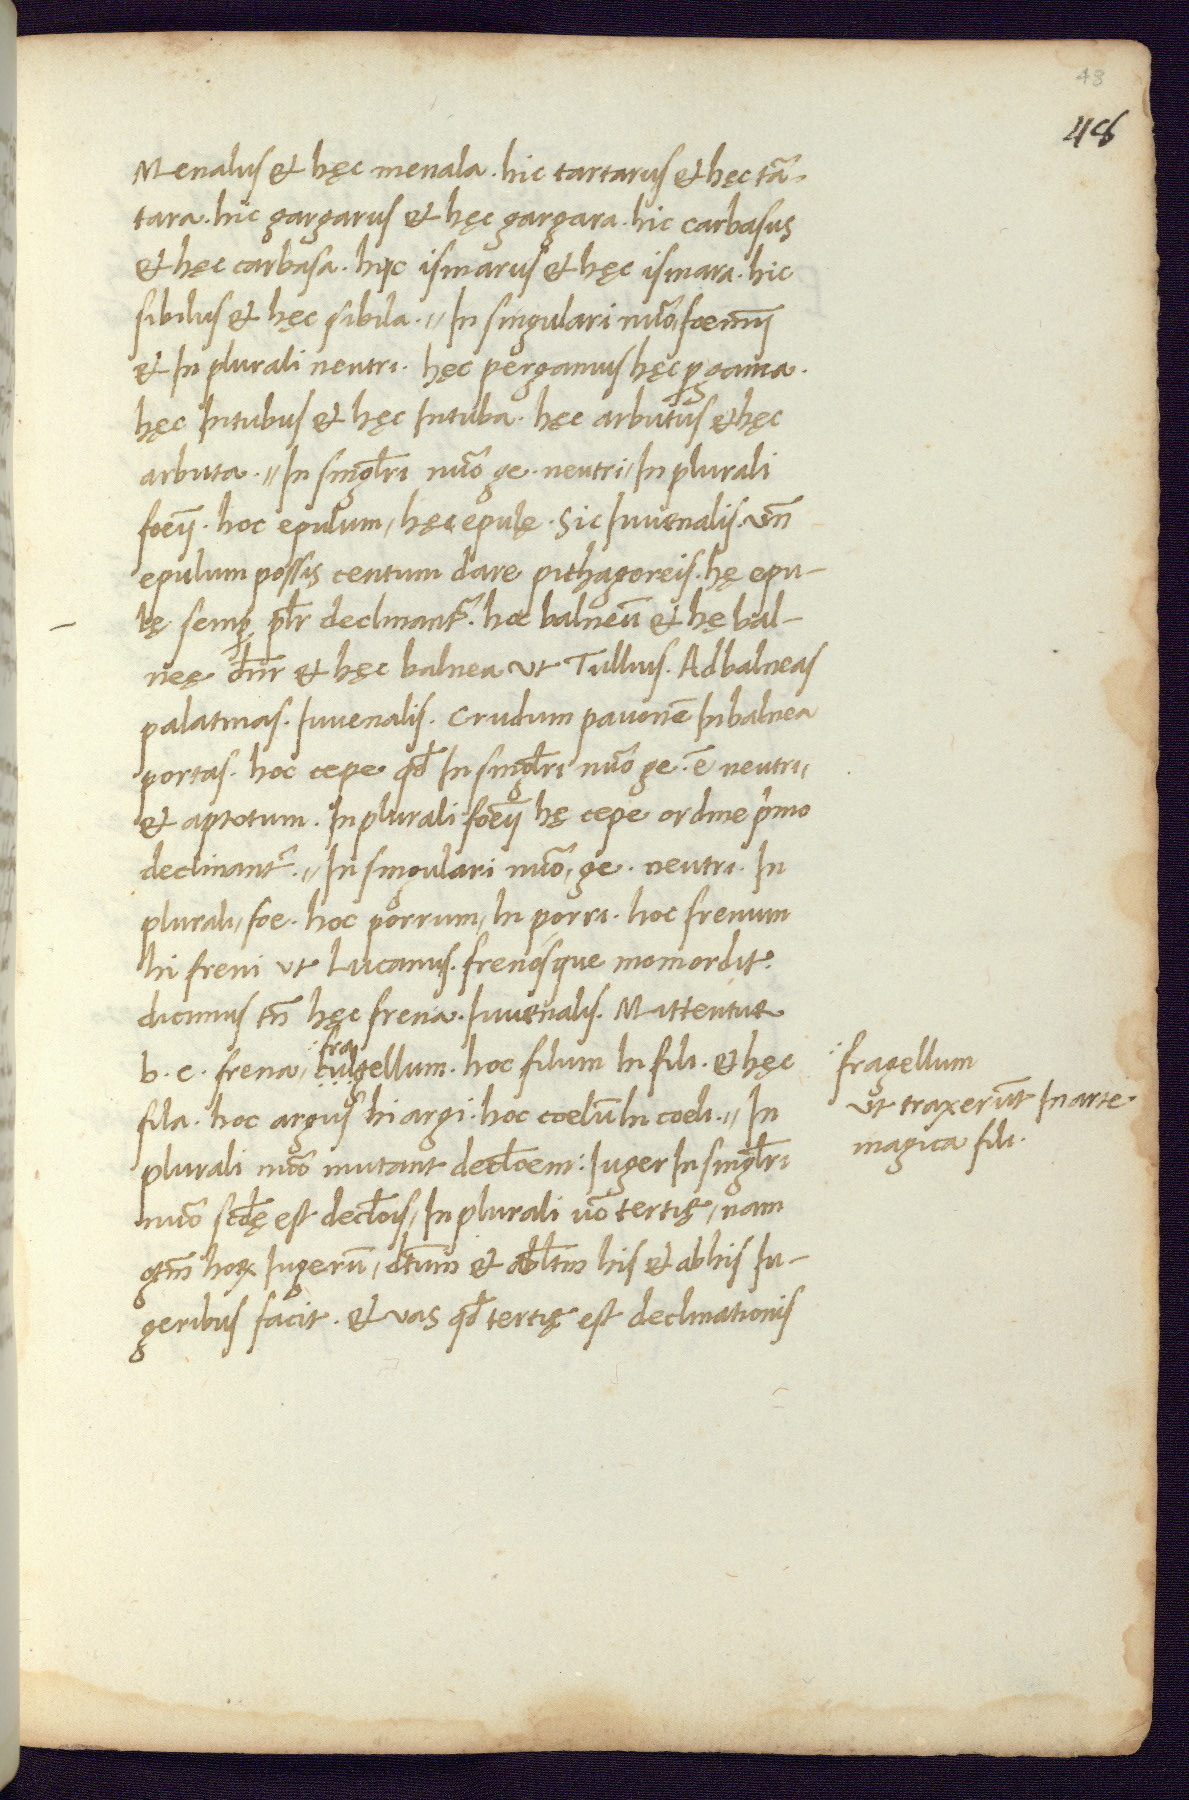 43
48
Menalus & hęc menala. hic tartarus & hęc tā.
tara. hic gargarus & hęc gargara. hic carbasus
& hęc carbasa. hic ismarus & hęc ismara. hic
sibilus & hęc sibila.// In singulari nūo, foemīj
& In plurali neutri. hęc pergamus hęc ꝑgama.
hęc Intubus & hęc Intuba. hęc arbutus & hęc
arbuta.// In singl̄ri nūo ge. neutri, In plurali
foeīj. hoc epulum, hęc epulę. Sic Juvenalis. un̄
epulum possis centum dare pithagoreis. hę epu-
lę semꝑ pl̄r declinant̄. hoc balneū & hę bal-
neę dn̄r & hęc balnea ut Tullius. Ad balneas
palatinas. Juvenalis. Crudum pavonē In balnea
portas. hoc cepe qd̄ In singl̄ri nūo ge. ē neutri,
& aptotum. In plurali foeīj hę cepe ordine p̄mo
declinant̄.// In singulari nūo, ge. neutri. In
plurali, foe. hoc porrum, hi porri. hoc frenum
hi freni ut Lucanus. frenosque momordit.
dicimus tn̄ hęc frena. Juvenalis. Mittentur
fra
b. c. frena, cultellum. hoc filum hi fili. & hęc
fila. hoc argus hi argi. hoc coelū hi coeli.// In
plurali nūo mutant decl̄oem: Juger In singl̄ri
nūo scd̄ę est decl̄ois, In plurali v̄o tertię, nam
gtm̄ hoꝝ Jugerū, dtium̄ & abl̄tm his & ab his Ju-
geribus facit. & vas qd̄ tertię est declinationis
fragellum
ut traxerūt In arte
magica fili.